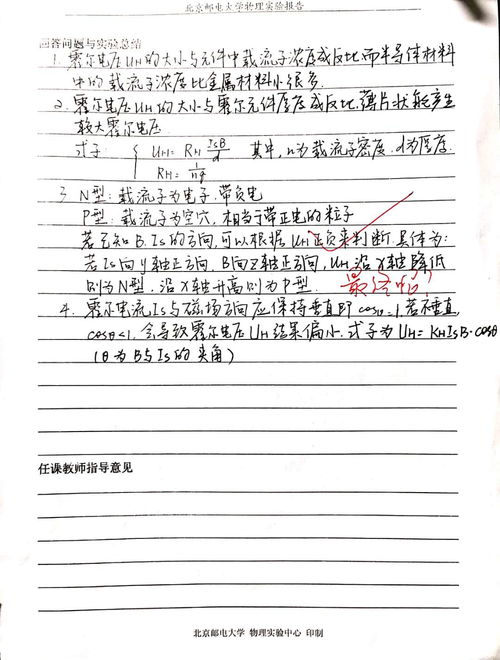 北京邮电大学物理实验报告
回答问题与实验总结
1. 霍尔电压UH的大小与元件中载流子浓度成反比,而半导体材料
中的载流子浓度比金属材料小很多.
2. 霍尔电压UH的大小与霍尔元件厚度成反比,薄片状能产生
较大霍尔电压.
式子 { UH = RH ISB/d 其中, n为载流子密度. d为厚度.
RH = 1/nq
3 N型: 载流子为电子. 带负电
P型: 载流子为空穴. 相当于带正电的粒子
若已知B. Is的方向, 可以根据UH正负来判断. 具体为:
若Is向y轴正方向, B向Z轴正方向, UH沿x轴降低
则为N型. 沿x轴升高则为P型.
4. 霍尔电流Is与磁场方向应保持垂直即cosθ=1, 若不垂直
cosθ<1, 会导致霍尔电压UH结果偏小. 式子为UH = KHIsB·cosθ
(θ为B与Is的夹角)
任课教师指导意见
北京邮电大学 物理实验中心 印制